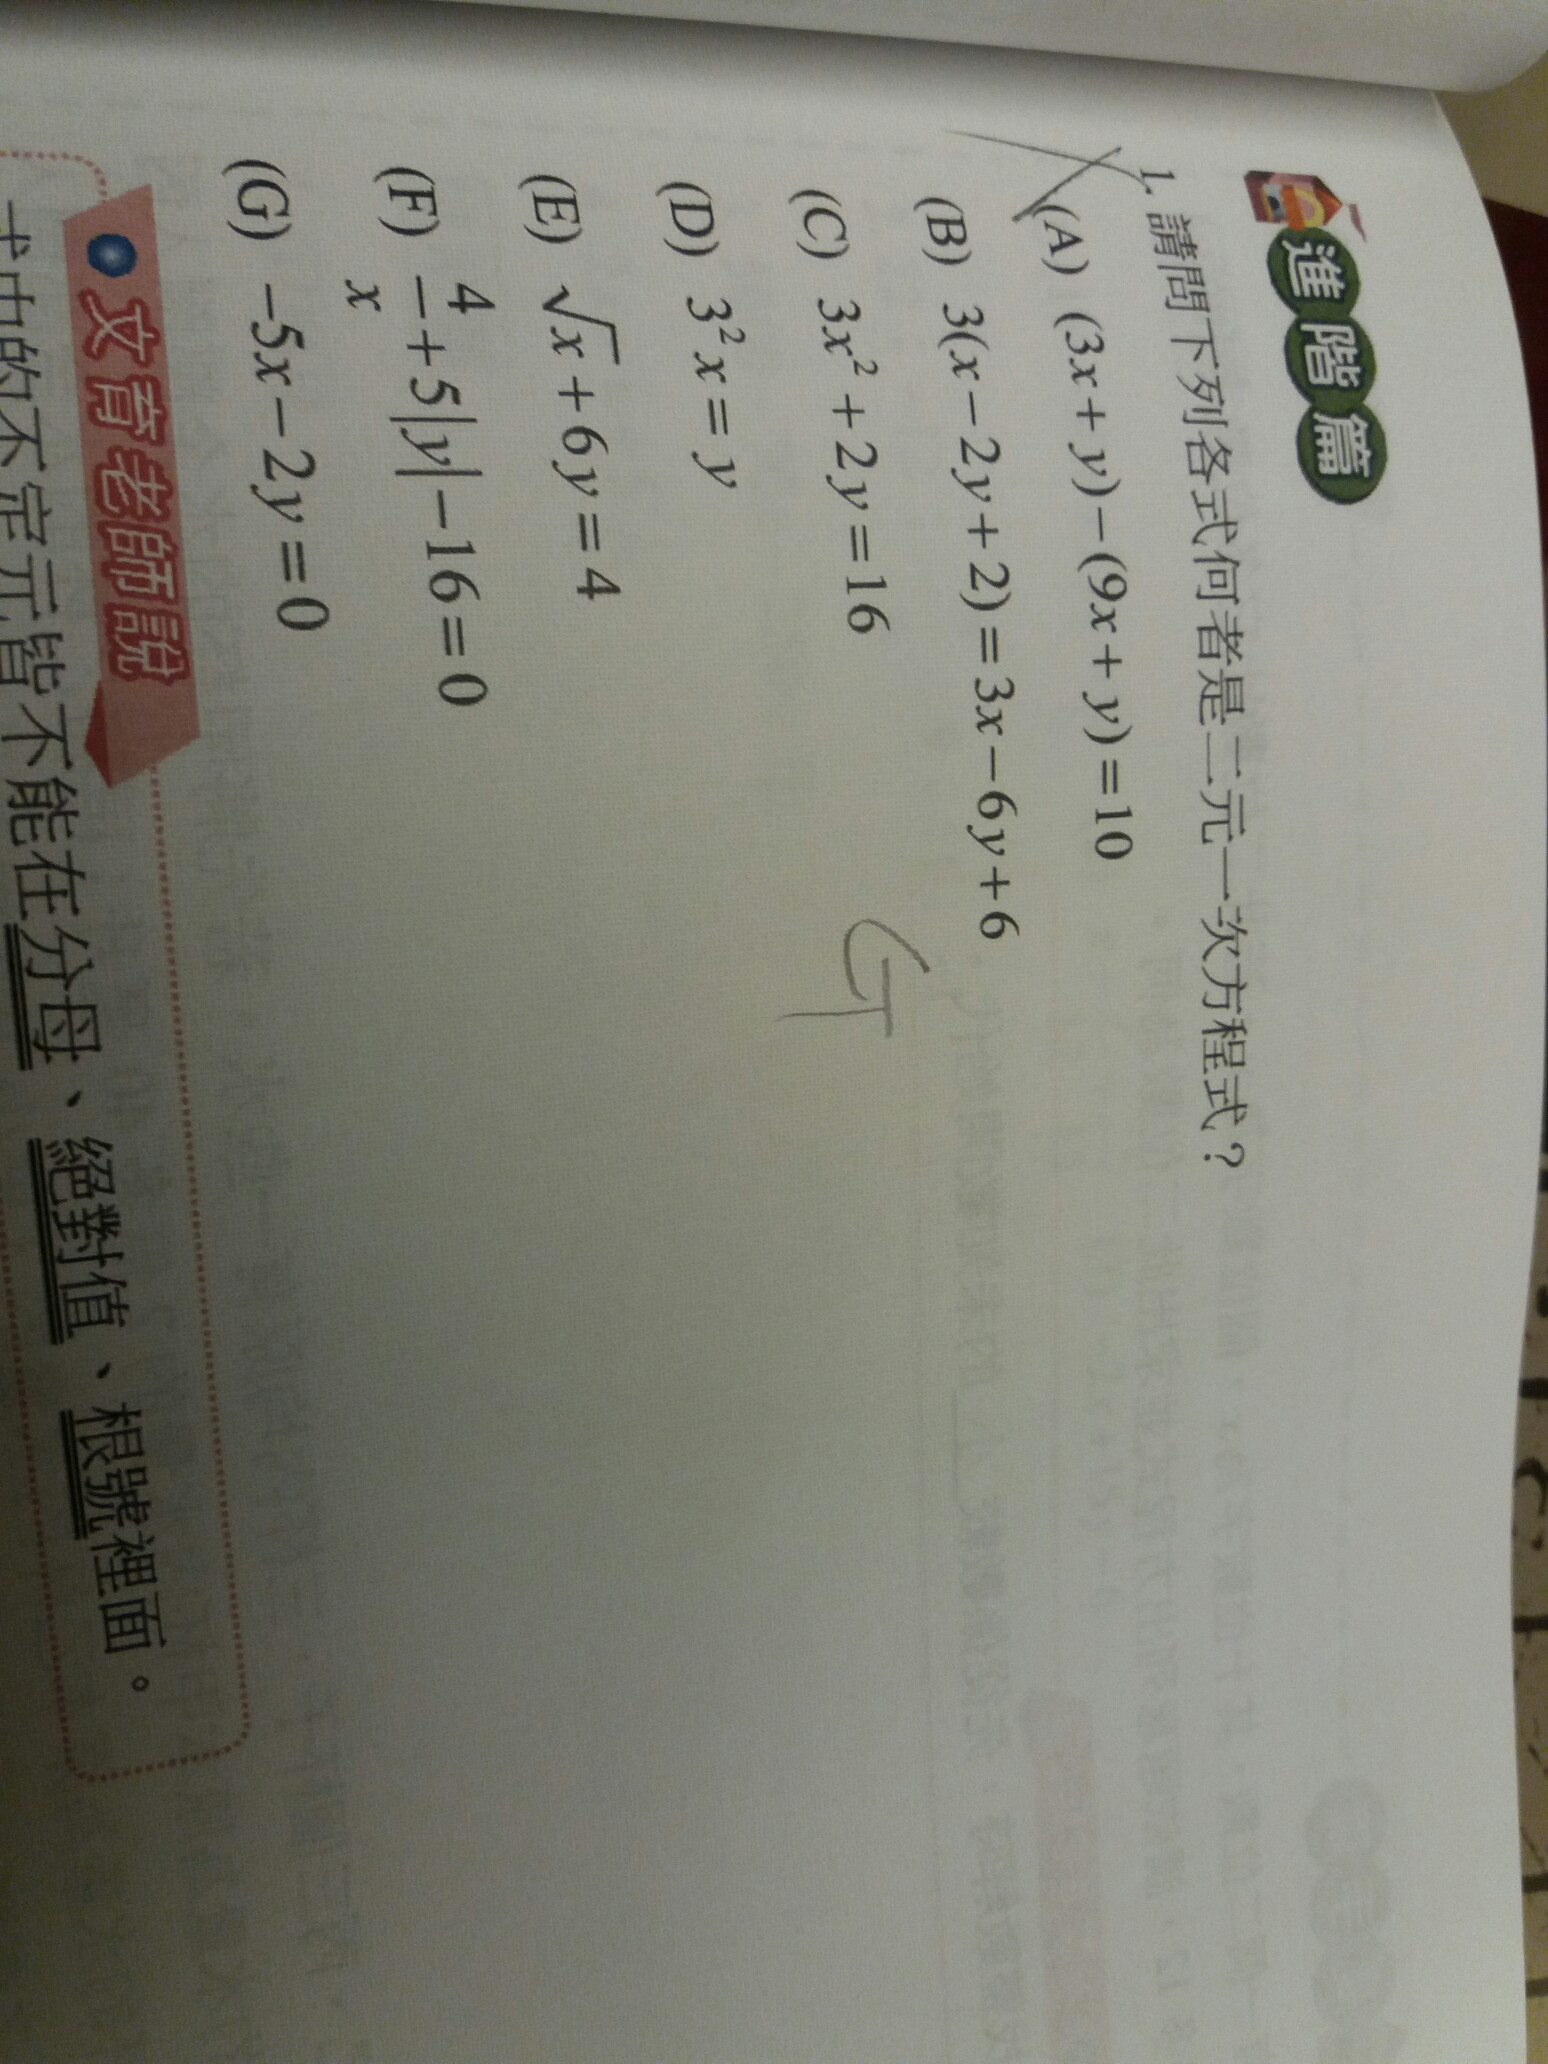 進階篇
1. 請問下列各式何者是二元一次方程式？
(A) (3x+y)−(9x+y)=10
(B) 3(x−2y+2)=3x−6y+6
(C) 3x²+2y=16
(D) 3²x=y
(E) √x+6y=4
(F) 4/x+5|y|−16=0
(G) −5x−2y=0
G
文育老師說
式中的不定元皆不能在分母、絕對值、根號裡面。